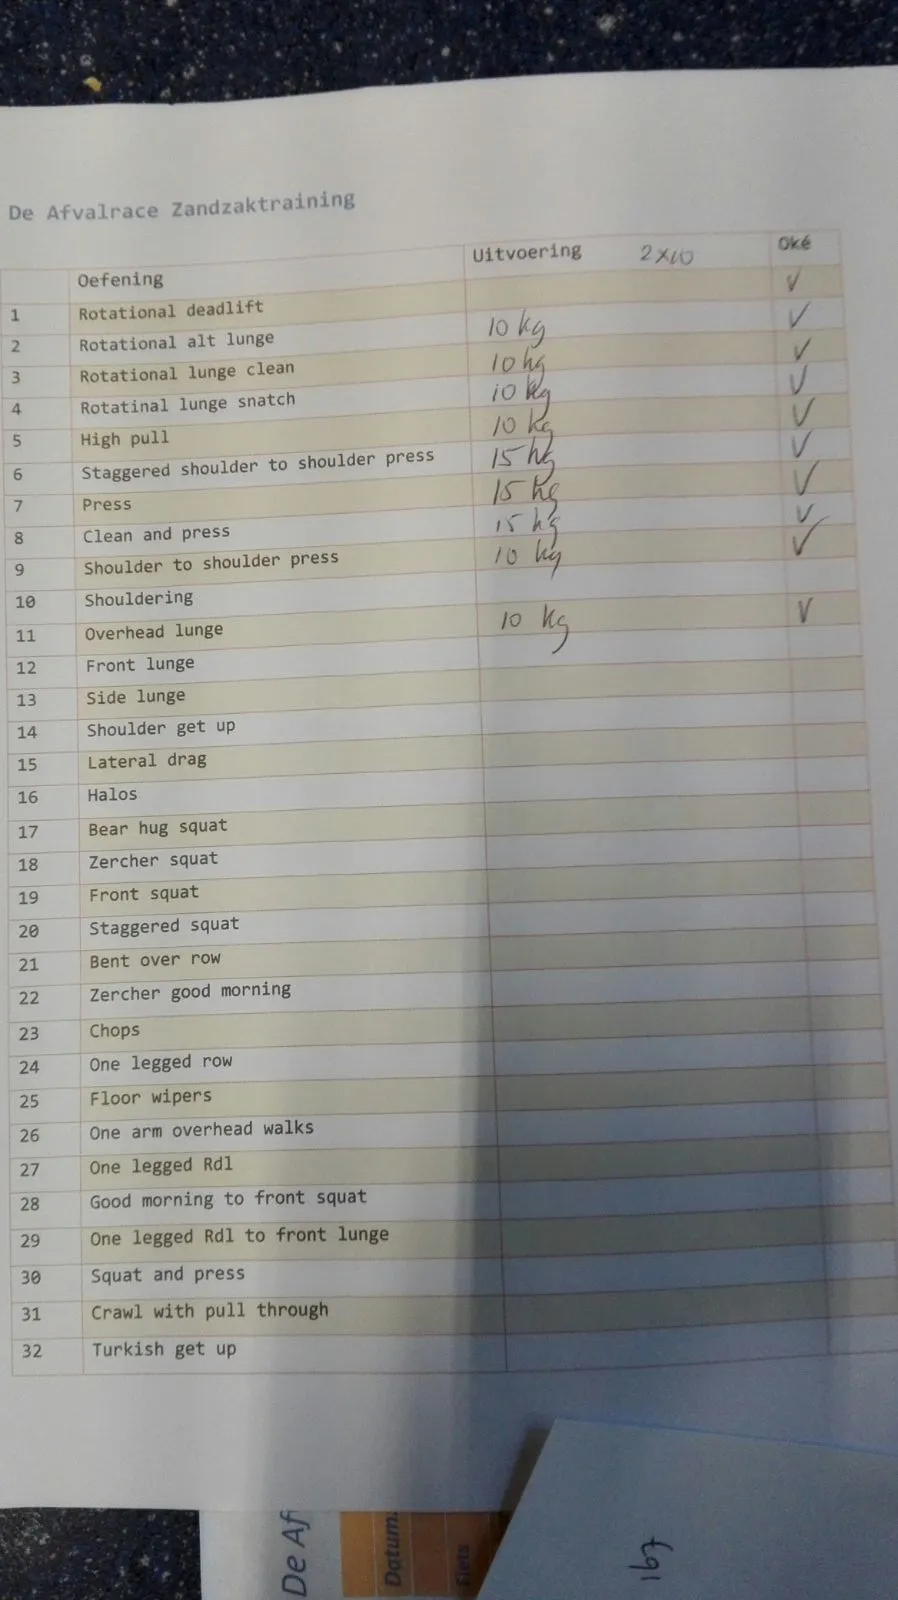 De Afvalrace Zandzaktraining
Oefening Uitvoering 2x10 Oké
1 Rotational deadlift ✓
2 Rotational alt lunge 10 kg ✓
3 Rotational lunge clean 10 kg ✓
4 Rotatinal lunge snatch 10 kg ✓
5 High pull 10 kg ✓
6 Staggered shoulder to shoulder press 15 kg ✓
7 Press 15 kg ✓
8 Clean and press 15 kg ✓
9 Shoulder to shoulder press 10 kg ✓
10 Shouldering
11 Overhead lunge 10 kg ✓
12 Front lunge
13 Side lunge
14 Shoulder get up
15 Lateral drag
16 Halos
17 Bear hug squat
18 Zercher squat
19 Front squat
20 Staggered squat
21 Bent over row
22 Zercher good morning
23 Chops
24 One legged row
25 Floor wipers
26 One arm overhead walks
27 One legged Rdl
28 Good morning to front squat
29 One legged Rdl to front lunge
30 Squat and press
31 Crawl with pull through
32 Turkish get up
De Af
Datum:
Fiets